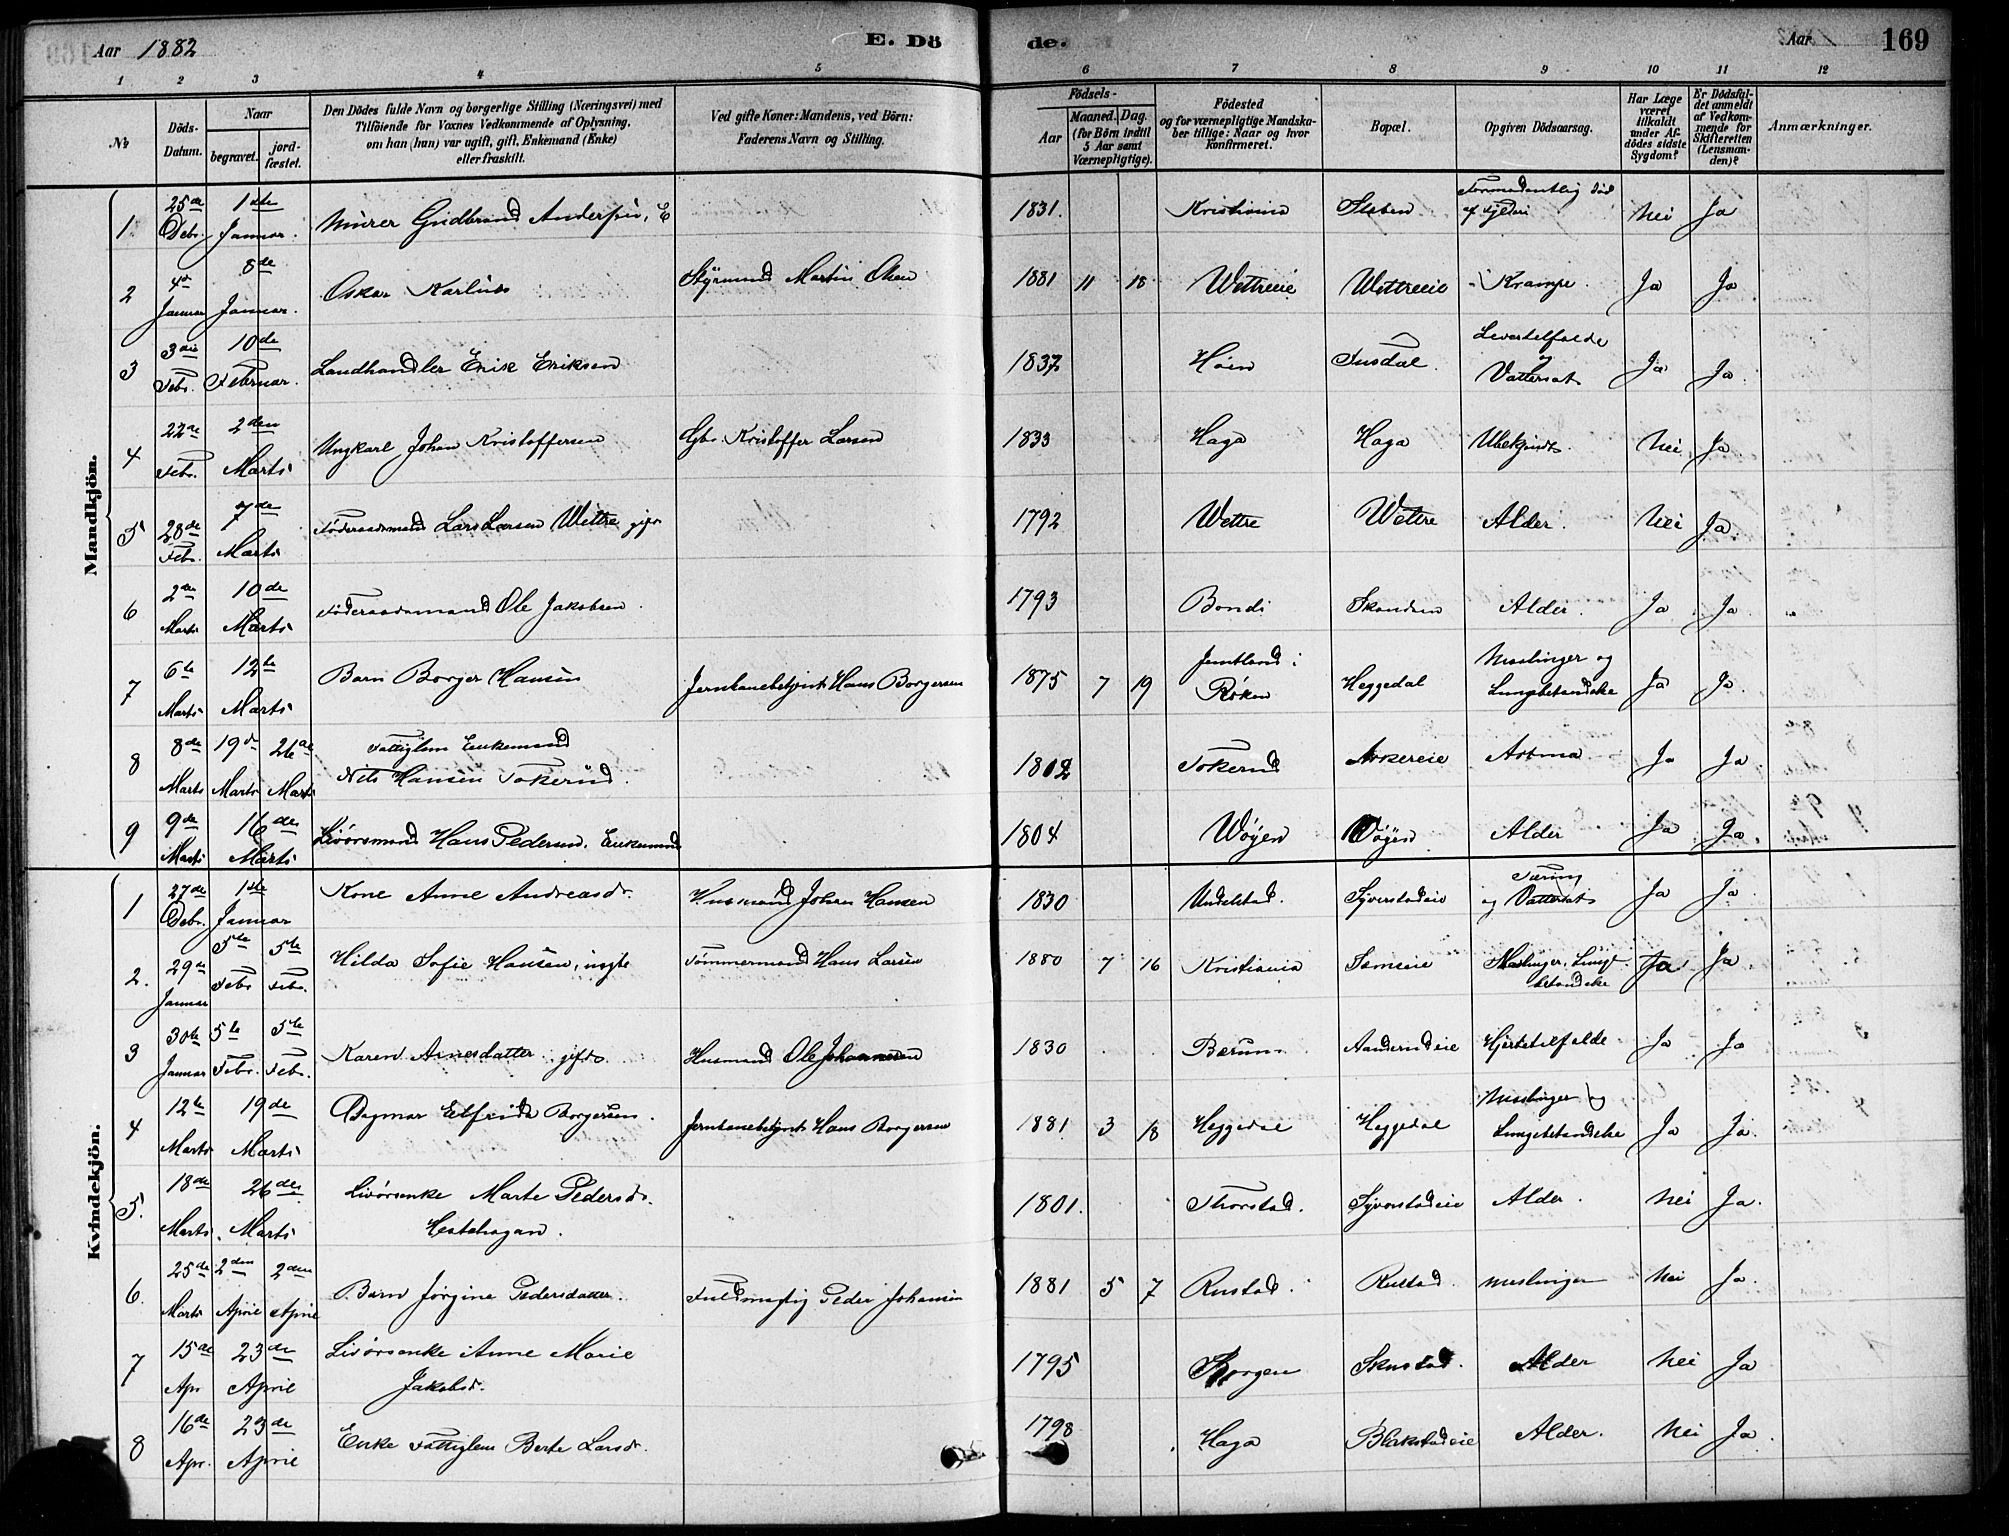 Aar 1882 E. Döde. Aar 169
1 2 3 4 5 6 7 8 9 10 11 12
№ Döds-Datum. Naar begravet. jordfæstet. Den Dödes fulde Navn og borgerlige Stilling (Næringsvei) med Tilföiende for Voxnes Vedkommende af Oplysning, om han (hun) var ugift, gift, Enkemand (Enke) eller fraskilt. Ved gifte Koner: Mandens, ved Börn: Faderens Navn og Stilling. Födsels- Aar Maaned. Dag. (for Börn indtil 5 Aar samt Værnepligtige). Födested og for værnepligtige Mandskaber tillige: Naar og hvor konfirmeret. Bopæl. Opgiven Dödsaarsag. Har Læge været tilkaldt under Afdödes sidste Sygdom? Er Dödsfaldet anmeldt af Vedkommende for Skifteretten (Lensmanden)? Anmærkninger.
Mandkjön.
1 25de Debr. 1ste Januar. Murer Gudbrand Andersen, E 1831. Kristiania Formodentlig død af Nei Ja
2 4de Januar 8de Januar. Oskar Karlius Styrmand Martin Olsen 1881 11 18 Wettreeie Wettreeie Krampe. Ja Ja
3 3die Febr. 10de Februar. Landhandler Erik Eriksen 1837 Høen Tusdal. Levertilfælde og Vattersot Ja Ja.
4 22de Febr. 2den Marts Ungkarl Johan Kristoffersen Gbr. Kristoffer Larsen 1833 Haga Haga Ubekjendt. Nei Ja
5 28de Febr. 7de Marts Føderaadsmand Lars Larsen Wettre gift 1792 Wettre Wettre Alder. Nei Ja.
6 2den Marts 10de Marts Føderaadsmand Ole Jakobsen. 1793 Bondi Skandsen Alder. Ja Ja.
7 6te Marts 12te Marts Barn Borger Hansen Jernbanebetjent Hans Borgersen 1875 7 19 Jemtland i Røken Heggedal Meslinger og Lungebetændelse Ja Ja.
8 8de Marts 19de Marts 26de Marts Fattiglem Enkemand Nils Hansen Tokerud. 1812 Tokerud Askereie Astma Ja Ja
9 9de Marts 16de Marts Livörsmand Hans Pedersen. Enkemand 1804 Wøyen Vøyen Alder Ja Ja.
Kvindekjön.
1 27de Debr. 1ste Januar Kone Anne Andreasd. Husmand Johan Hansen 1830 Undelstad. Syverstadeie Tæring og Vattersot Ja Ja
2. 29de Januar 5te Febr. 5te Febr. Hilda Sofie Hansen, ugift Tømmermand Hans Larsen 1880 7 16 Kristiania Semseie Meslinger, Lungebetændelse Ja Ja
3 30te Januar 5te Febr. 5te Febr. Karen Arnesdatter gift Husmand Ole Johannesen 1830 Bærum Aanderudeie Hjertetilfælde Ja Ja
4 12te Marts 19de Marts Dagmar Elfrida Borgersen. Jernbanebetjent Hans Borgersen 1881. 3 18 Heggedal Heggedal Meslinger og Lungebetændelse Ja Ja.
5. 18de Marts. 26de Marts Livörsenke Marte Pedersd. Hestehagan. 1801. Thorstad. Syverstadeie Alder. Nei Ja.
6. 25de Marts 2den April 2den April Barn Jørgine Pedersdatter. Fuldmægtig Peder Johansen 1881 5 7 Rustad. Rustad. Meslinger Nei Ja.
7 15de Apr 23de April Livörsenke Anne Marie Jakobsd. 1795 Borgen Skustad. Alder Nei Ja
8 16de Apr. 23de April Enke Fattiglem Berte Larsd. 1798 Haga Blakstadeie Alder. Nei Ja.